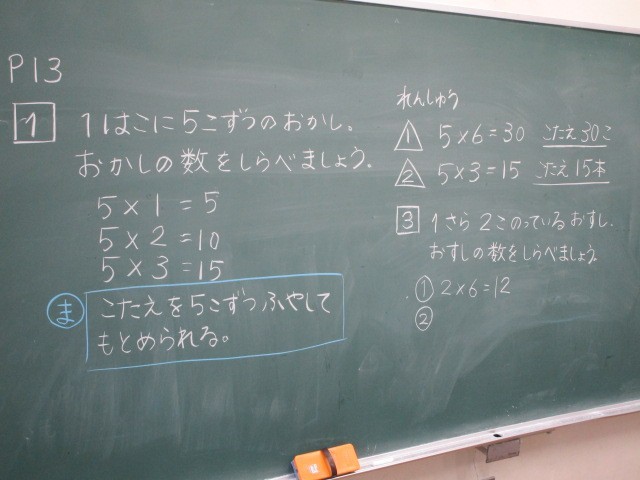 P13
1 1はこに5こずつのおかし、
おかしの数をしらべましょう.
5×1=5
5×2=10
5×3=15
ま こたえを5こずつふやして
もとめられる。
れんしゅう
1 5×6=30 こたえ30こ
2 5×3=15 こたえ15本
3 1さら2このっているおすし.
おすしの数をしらべましょう.
① 2×6=12
②